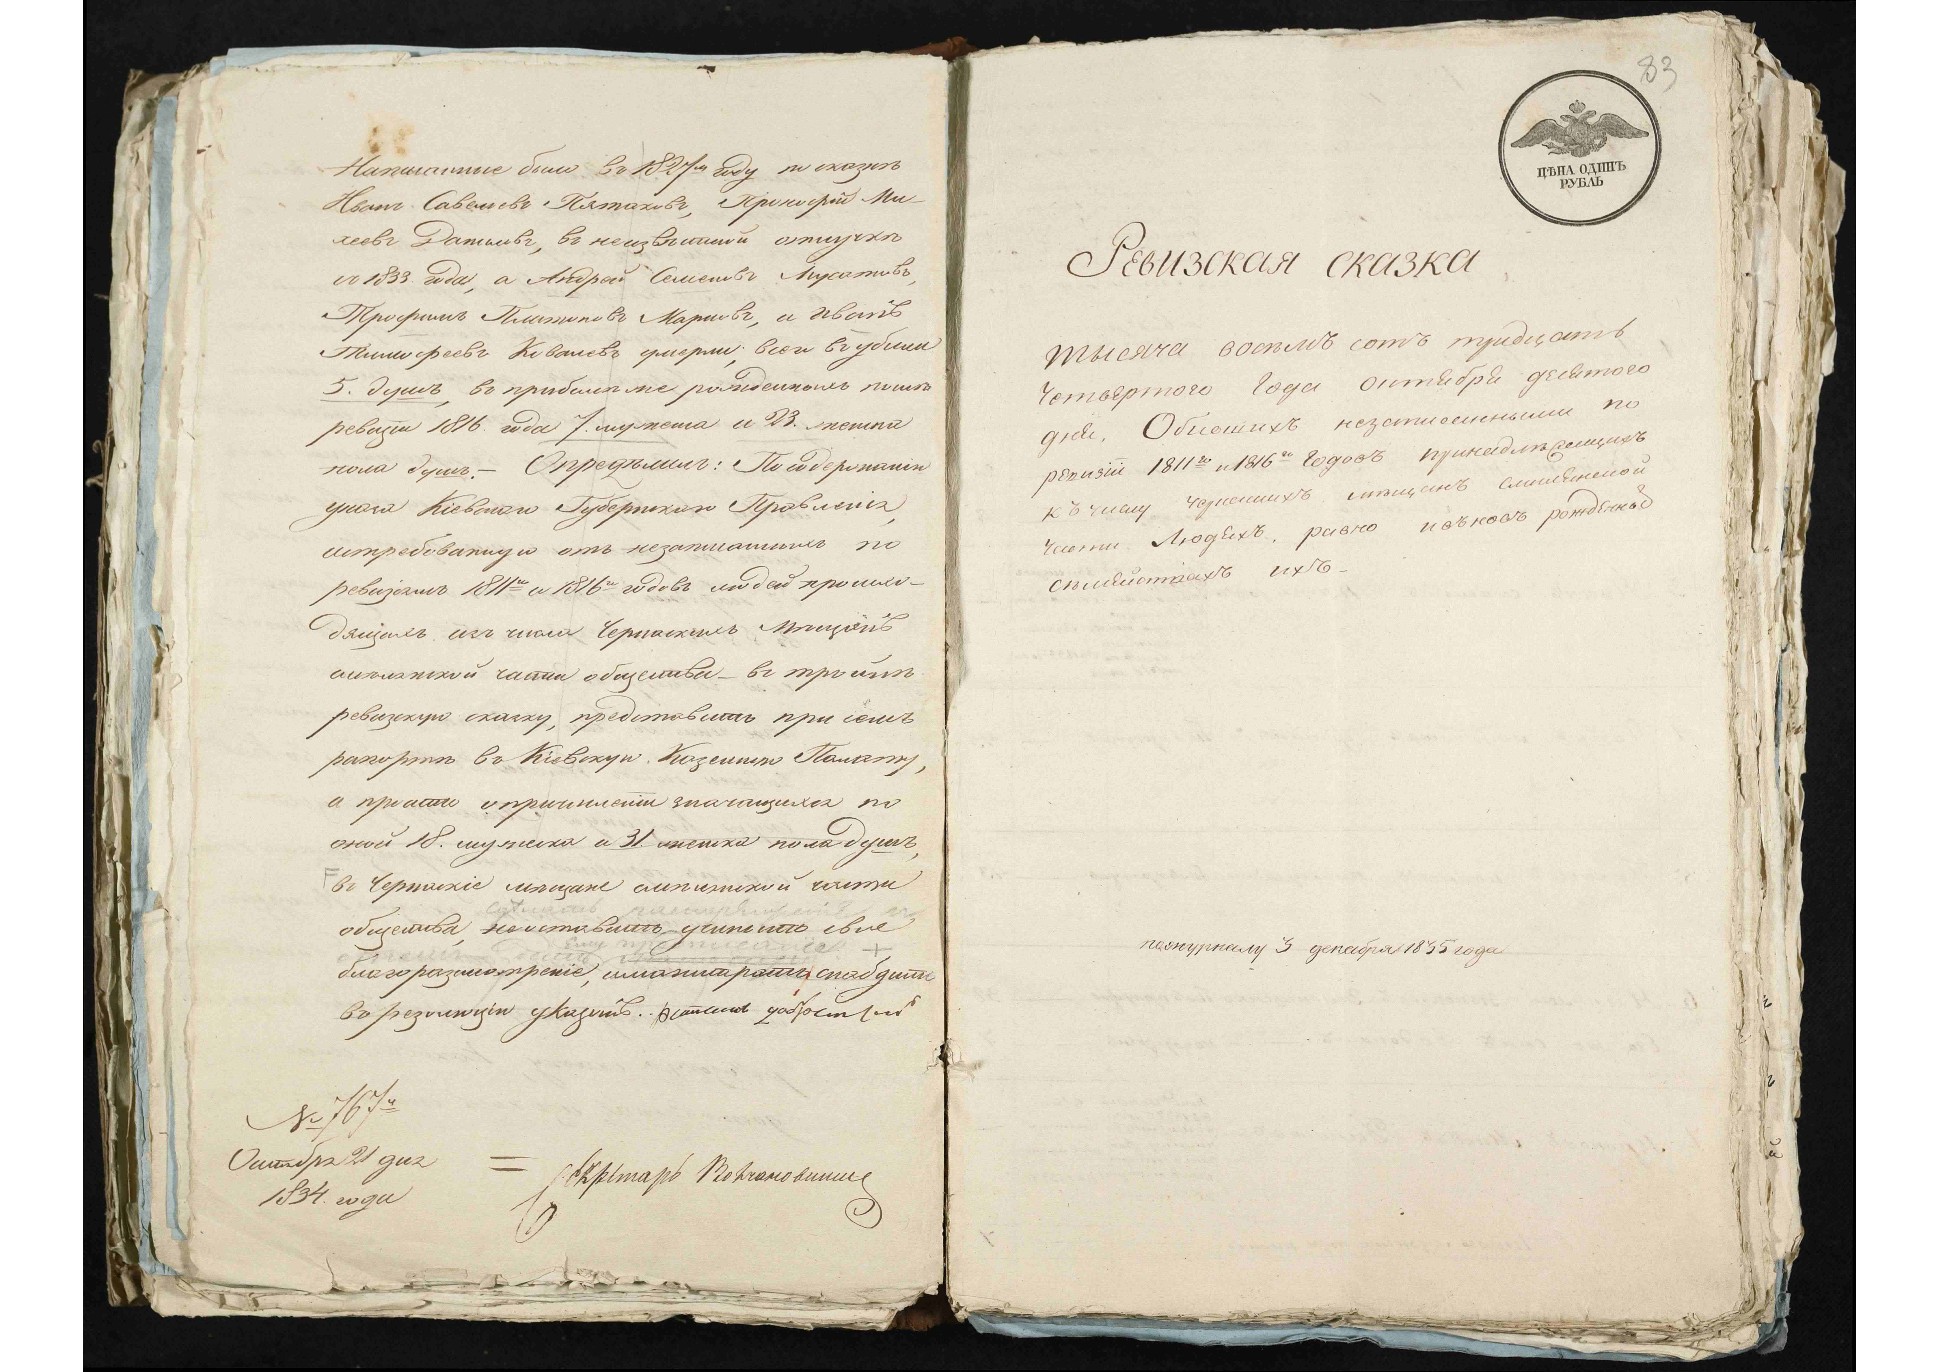 Написанные были въ 1827м году по сказкѣ
Иванъ Савельевъ Пятаковъ, Прокофій Ми-
хеевъ Даниловъ, въ неизвѣстной отлучкѣ
съ 1833 года, а Андрей Семеновъ Мусатовъ,
Трофимъ Платоновъ Марковъ, и Иванъ
Тимофеевъ Ковалевъ умерли, всего въ убыли
5. душъ, въ прибыли же рожденныхъ послѣ
ревизіи 1816 года 7. мужеска и 23. женска
пола душъ. – Опредѣлилъ: По содержанію
указа Кіевскаго Губернскаго Правленія,
истребованную отъ незаписанныхъ по
ревизіямъ 1811го и 1816го годовъ людей происхо-
дящихъ изъ числа Черкаскихъ Мѣщанъ
смѣлянской части общества – въ тройнѣ
ревизскую сказку, представить при семъ
рапортѣ въ Кіевскую Казенную Палату,
и просить о причисленіи значащихся по
оной 18. мужеска и 31. женска пола душъ,
въ Черкаскіе мѣщане смѣлянской части
общества, неоставить учинить свое
благоразсмотреніе, и магистратъ снабдить
въ резолюціи указомъ.
№ 767й
Октября 21 дня
1834. года
Секретарь
83
ЦѢНА ОДИНЪ
РУБЛЬ
Ревизская сказка
Тысяча восѣмъ сотъ тридцать
четвертого Года октября девятого
дня. Обносихъ незаписенными по
ревизіи 1811го и 1816го Годовъ принадлѣжащихъ
къ числу черкаскихъ мѣщанъ смилянской
части Людяхъ, равно и въновъ рожденыхъ
съмѣйствахъ ихъ –
пожурналу 3 декабря 1835 года